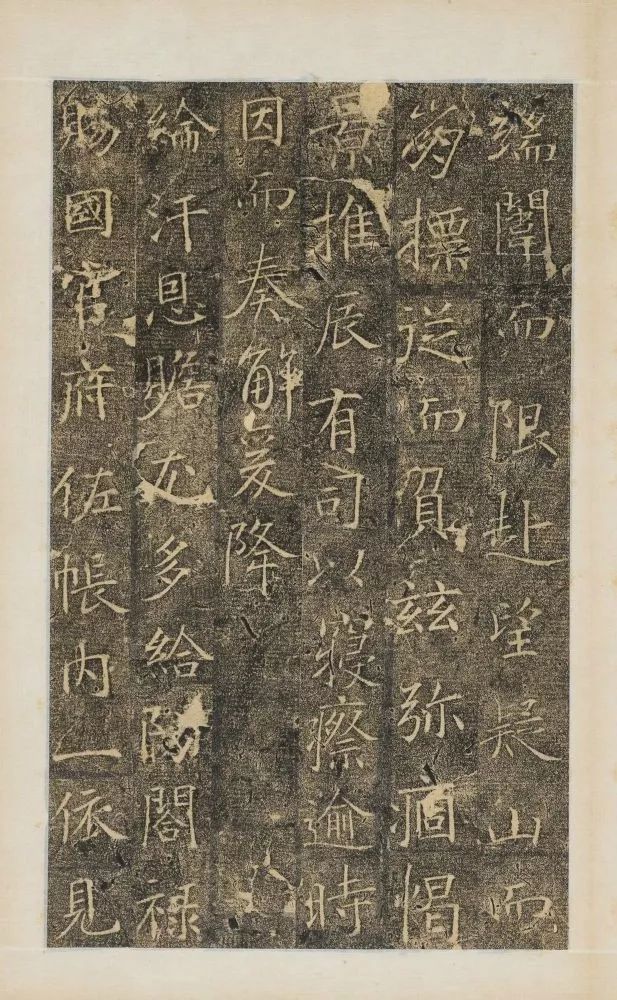 端闈而限赴望疑山而
前摽從而負茲弥痼惕
景推辰有司以寢瘵逾時
因而奏解爰降
綸汗恩贍尤多給防閤祿
賜國官府佐帳內一依見